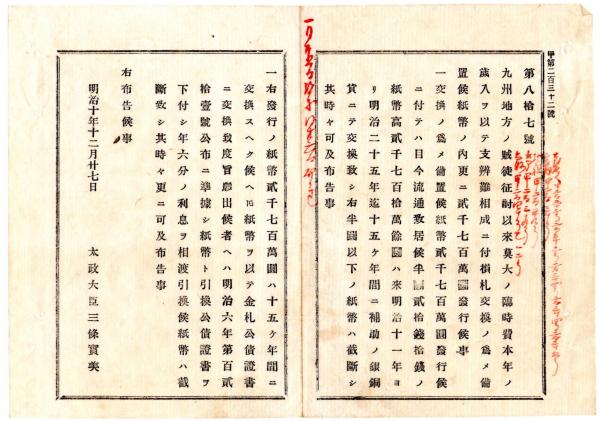 甲第二百三十二號
第八拾七號
九州地方ノ賊徒征討以來莫大ノ臨時費本年ノ
歲入ヲ以テ支辨難相成ニ付損札交換ノ爲メ備
置候紙幣ノ內更ニ貳千七百萬圓發行候事
一交換ノ爲メ備置候紙幣貳千七百萬圓發行候
ニ付テハ目今流通致居候半圓貳拾錢拾錢ノ
紙幣高貳千七百拾萬餘圓ハ來明治十一年ヨ
リ明治二十五年迄十五ケ年間ニ補助ノ銀銅
貨ニテ交換致シ右半圓以下ノ紙幣ハ截斷シ
其時々可及布告事
一右發行ノ紙幣貳千七百萬圓ハ十五ケ年間ニ
交換スヘク候ヘ𪜈紙幣ヲ以テ金札公債證書
ニ交換致度旨願出候者ヘハ明治六年第百貳
拾壹號公布ニ準據シ紙幣ト引換公債證書ヲ
下付シ年六分ノ利息ヲ相渡引換候紙幣ハ截
斷致シ其時々更ニ可及布告事
右布告候事
明治十年十二月廿七日
太政大臣三條實美